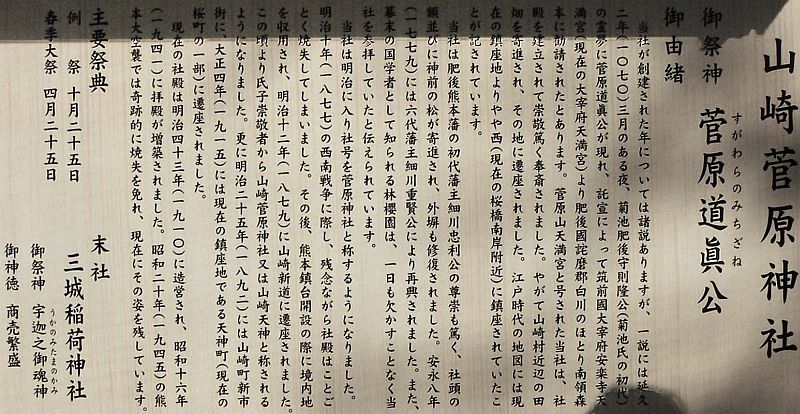 山崎菅原神社
御祭神　菅原道眞公
すがわらのみちざね
御由緒
当社が創建された年については諸説ありますが、一説には延久
二年(一〇七〇)三月のある夜、菊池肥後守則隆公(菊池氏の初代)
の霊夢に菅原道眞公が現れ、託宣によって筑前國大宰府安楽寺天
満宮(現在の大宰府天満宮)より肥後國詫磨郡白川のほとり南領森
本に勧請されたとあります。菅原山天満宮と号された当社は、社
殿を建立されて崇敬篤く奉斎されました。やがて山崎村近辺の田
畑を寄進され、その地に遷座されました。江戸時代の地図には現
在の鎮座地よりやや西(現在の桜橋南岸附近)に鎮座されていたこ
とが記されています。
当社は肥後熊本藩の初代藩主細川忠利公の尊崇も篤く、社頭の
額並びに神前の松が寄進され、外塀も修復されました。安永八年
(一七七九)には六代藩主細川重賢公により再興されました。また、
幕末の国学者として知られる林櫻園は、一日も欠かすことなく当
社を参拝していたと伝えられています。
当社は明治に入り社号を菅原神社と称するようになりました。
明治十年(一八七七)の西南戦争に際し、残念ながら社殿はことご
とく焼失してしまいました。その後、熊本鎮台開設の際に境内地
を収用され、明治十二年(一八七九)に山崎新道に遷座されました。
この頃より氏子崇敬者から山崎菅原神社又は山崎天神と称される
ようになりました。更に明治二十五年(一八九二)には山崎町新市
街に、大正四年(一九一五)には現在の鎮座地である天神町(現在の
桜町の一部)に遷座されました。
現在の社殿は明治四十三年(一九一〇)に造営され、昭和十六年
(一九四一)に拝殿が増築されました。昭和二十年(一九四五)の熊
本大空襲では奇跡的に焼失を免れ、現在にその姿を残しています。
主要祭典
例　祭　十月二十五日
春季大祭　四月二十五日
末社
三城稲荷神社
御祭神　宇迦之御魂神
うかのみたまのかみ
御神徳　商売繁盛